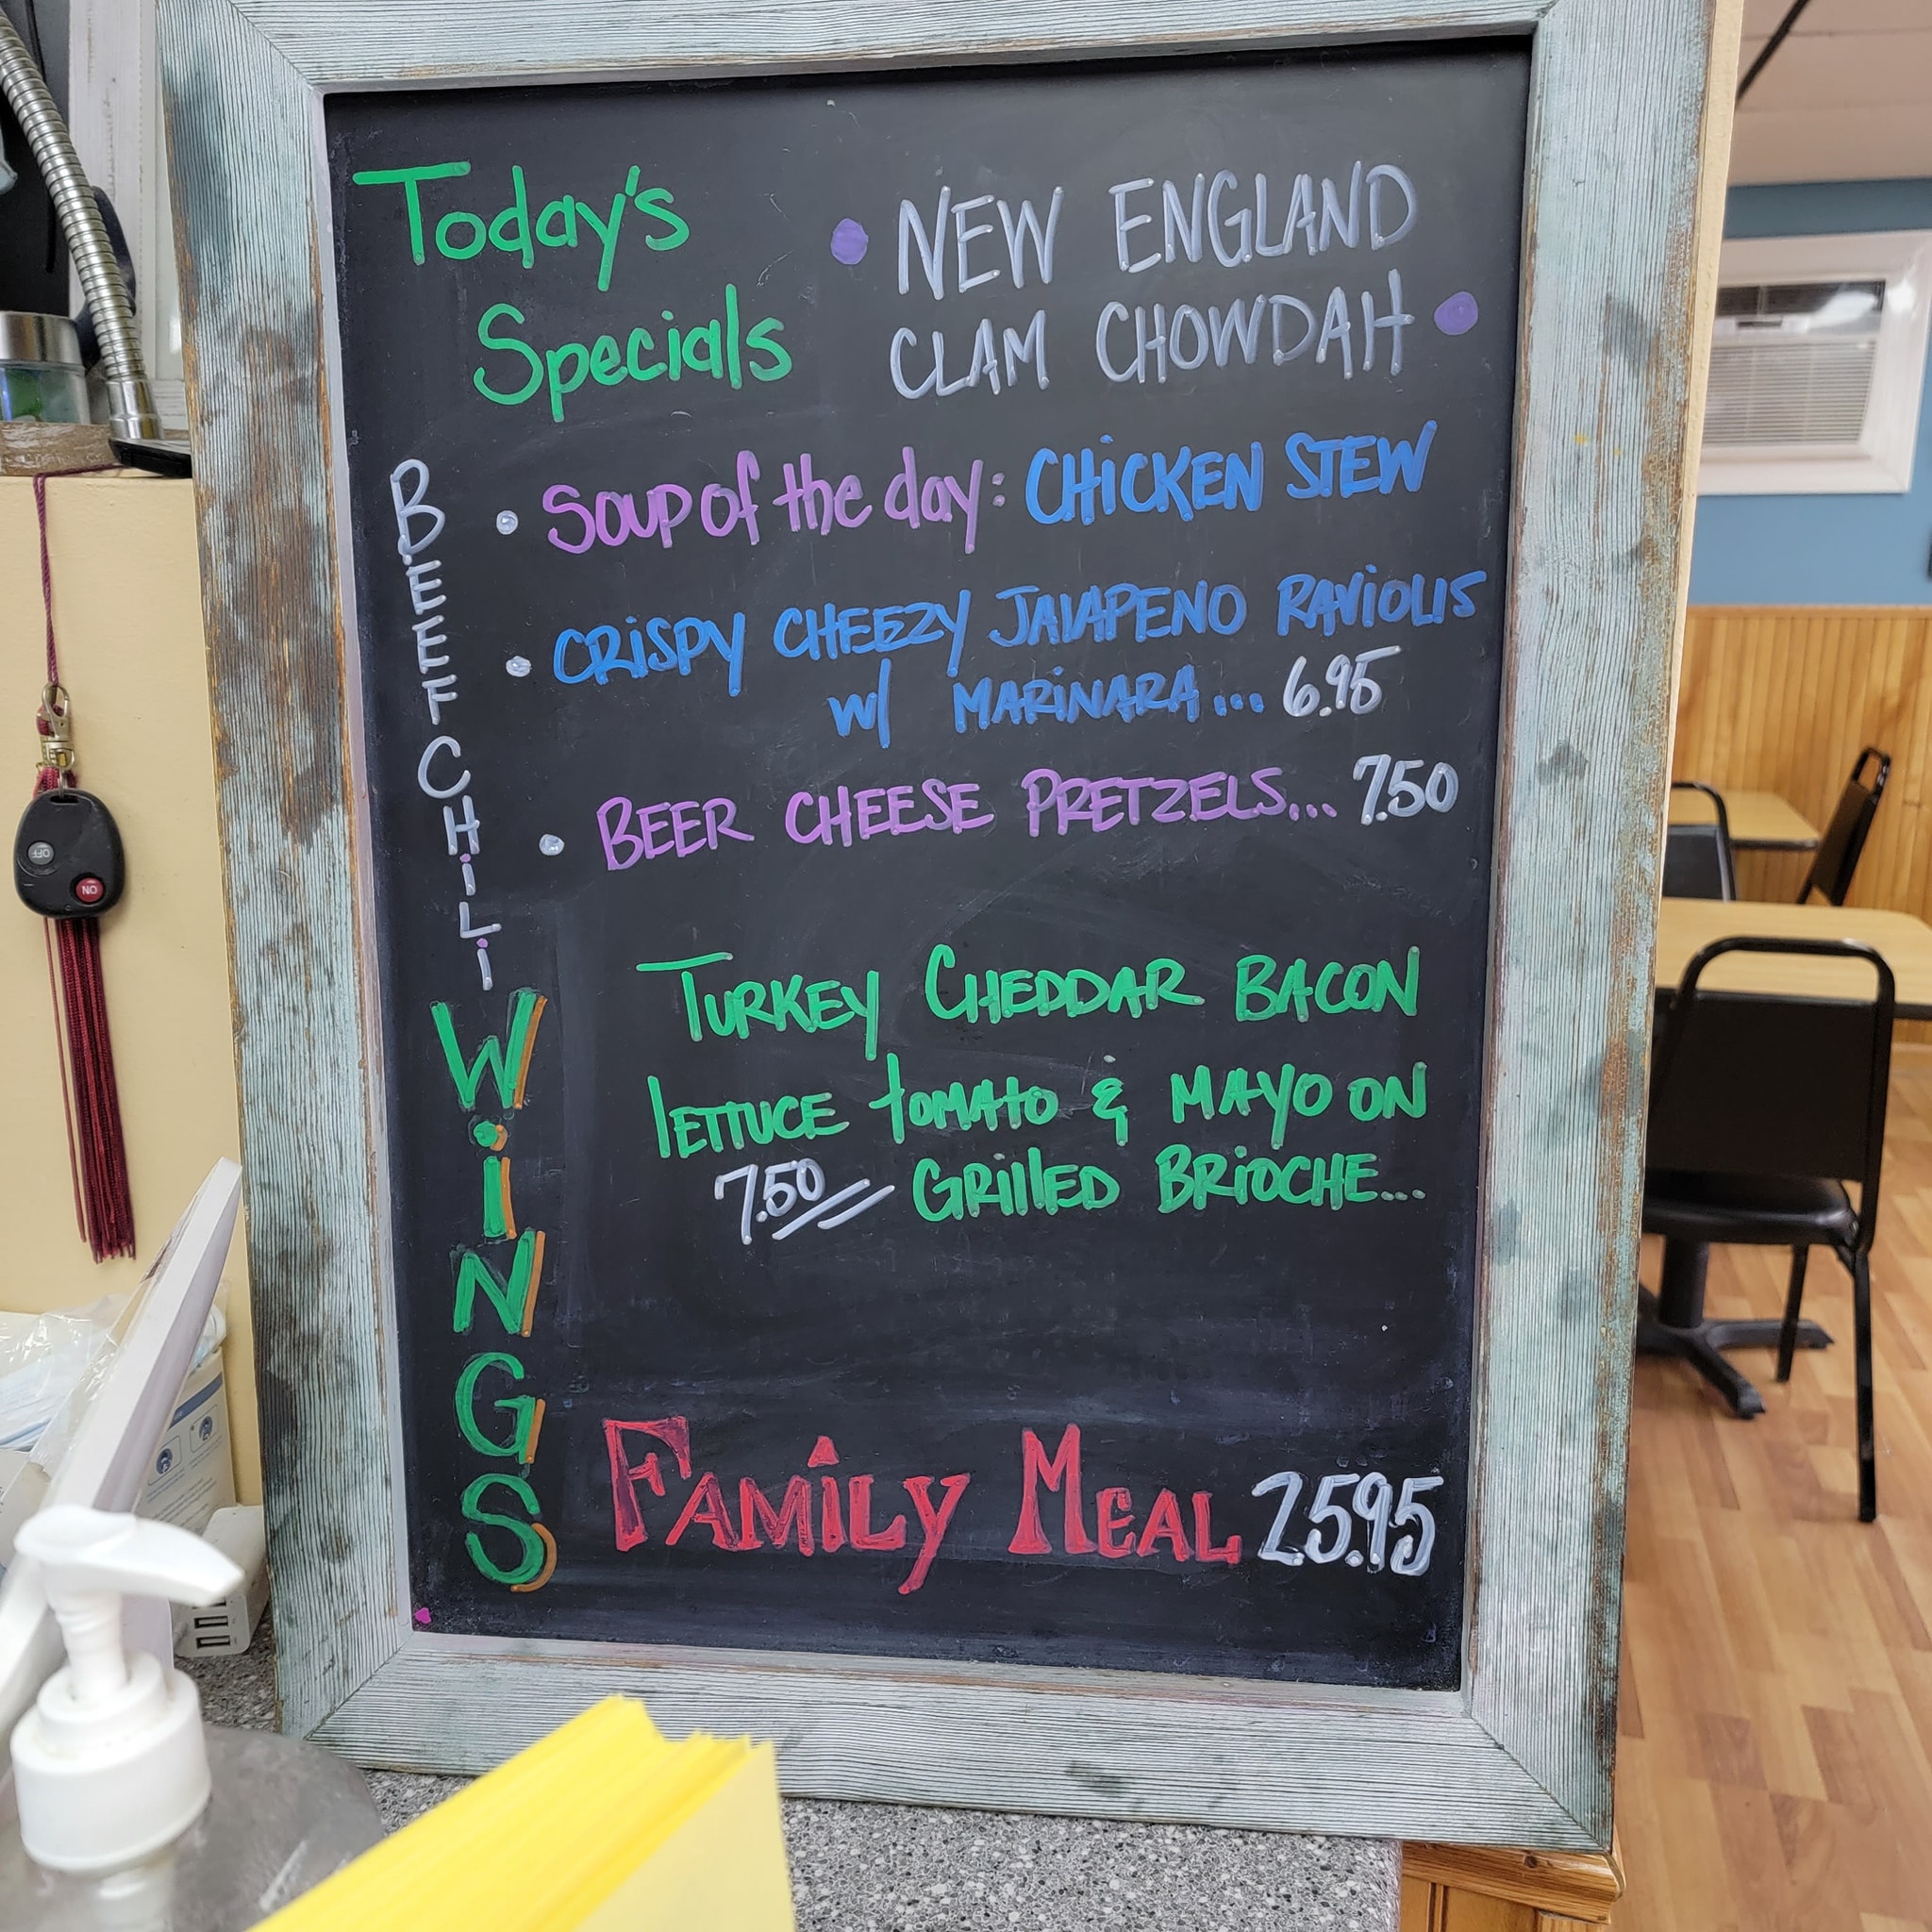 Today's
Specials
NEW ENGLAND
CLAM CHOWDAH
BEEF CHiLi
WiNGS
• Soup of the day: CHiCKEN STEW
• CRiSPY CHEEZY JALAPENO RAViOLIS
w/ MARiNARA... 6.95
• BEER CHEESE PRETZELS... 7.50
TURKEY CHEDDAR BACON
lETTUCE tOMAtO & MAYO ON
7.50 GRilleD BRiOCHE...
FAMiLY MEAL 25.95
OFF
ON